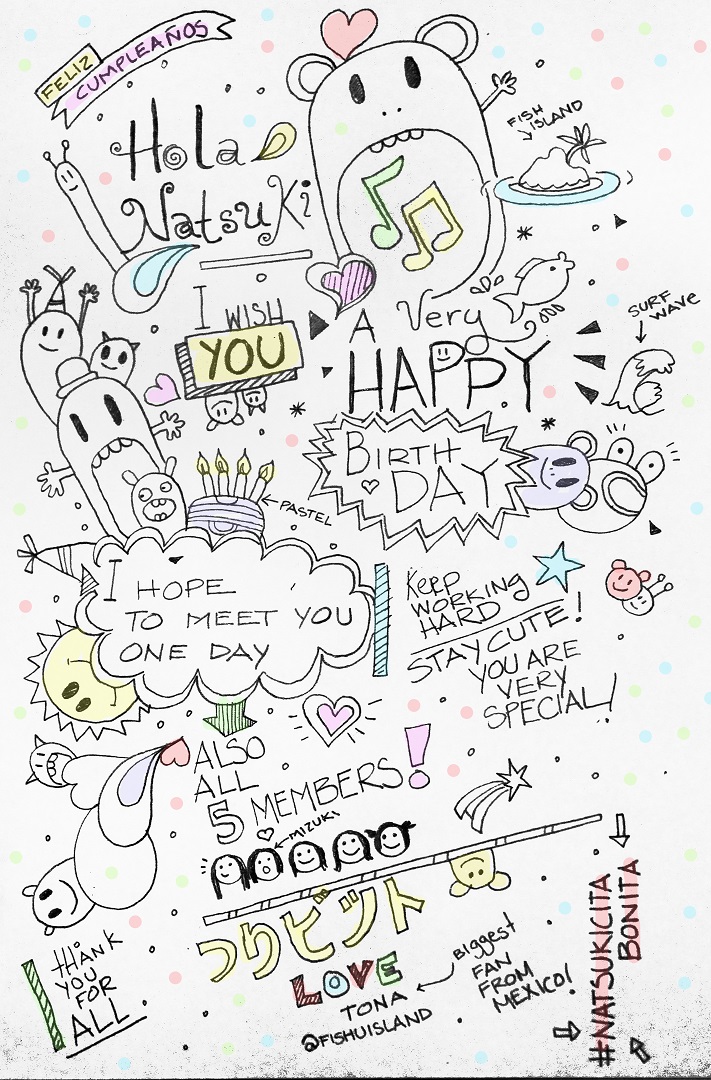 FELIZ
CUMPLEAÑOS
Hola
Natsuki
FISH
ISLAND
I WISH
YOU
A Very
HAPPY
SURF
WAVE
BIRTH
DAY
PASTEL
I HOPE
TO MEET YOU
ONE DAY
KEEP
WORKING
HARD
STAY CUTE!
YOU ARE
VERY
SPECIAL!
ALSO
ALL
5 MEMBERS!
MIZUKI
つりビット
LOVE
TONA
@FISHUISLAND
BIGGEST
FAN
FROM
MEXICO!
THANK
YOU
FOR
ALL
#NATSUKICITA
BONITA